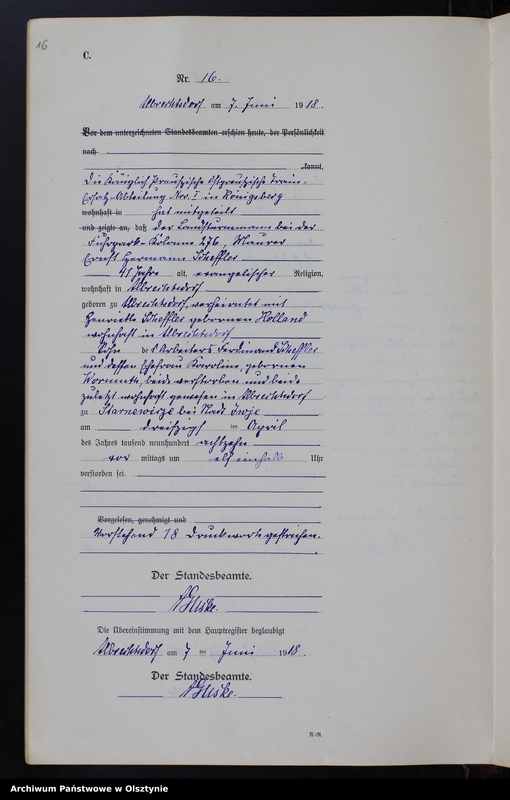 16
C.
Nr. 16.
Albrechtsdorf am 7. Juni 1918.
Vor dem unterzeichneten Standesbeamten erschien heute, der Persönlichkeit
nach
kannt,
die Königlich Preußische Ostpreußische Train-
Ersatz-Abteilung Nro. I in Königsberg
wohnhaft in hat mitgeteilt
und zeigte an, daß der Landsturmmann bei der
Fuhrpark-Kolonne 276, Maurer
Ernst Hermann Scheffler
41 Jahre alt, evangelischer Religion,
wohnhaft in Albrechtsdorf
geboren zu Albrechtsdorf, verheiratet mit
Henriette Scheffler geborenen Holland
wohnhaft in Albrechtsdorf
Sohn des Arbeiters Ferdinand Scheffler
und dessen Ehefrau Karoline, geborenen
Wormuth, beide verstorben und beide
zuletzt wohnhaft gewesen in Albrechtsdorf
zu Starnewicze bei Stadt Iwje
am dreißigsten April
des Jahres tausend neunhundert achtzehn
vor mittags um elf einhalb Uhr
verstorben sei.
Vorgelesen, genehmigt und
Vorstehend 18 Druckworte gestrichen.
Der Standesbeamte.
Die Übereinstimmung mit dem Hauptregister beglaubigt
Albrechtsdorf am 7 ten Juni 1918.
Der Standesbeamte.
Archiwum Państwowe w Olsztynie